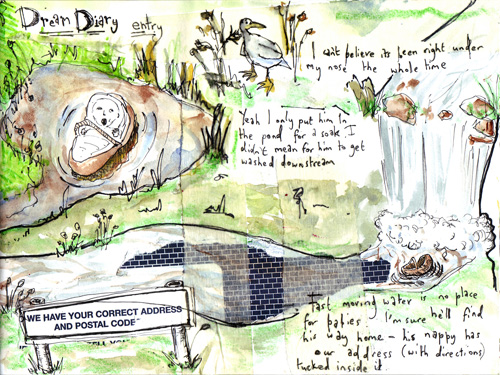 Dream Diary entry
I can't believe its been right under
my nose the whole time
Yeah I only put him in
the pond for a soak I
didn't mean for him to get
washed downstream
WE HAVE YOUR CORRECT ADDRESS
AND POSTAL CODE
Fast moving water is no place
for babies. I'm sure he'll find
his way home – his nappy has
our address (with directions)
tucked inside it.